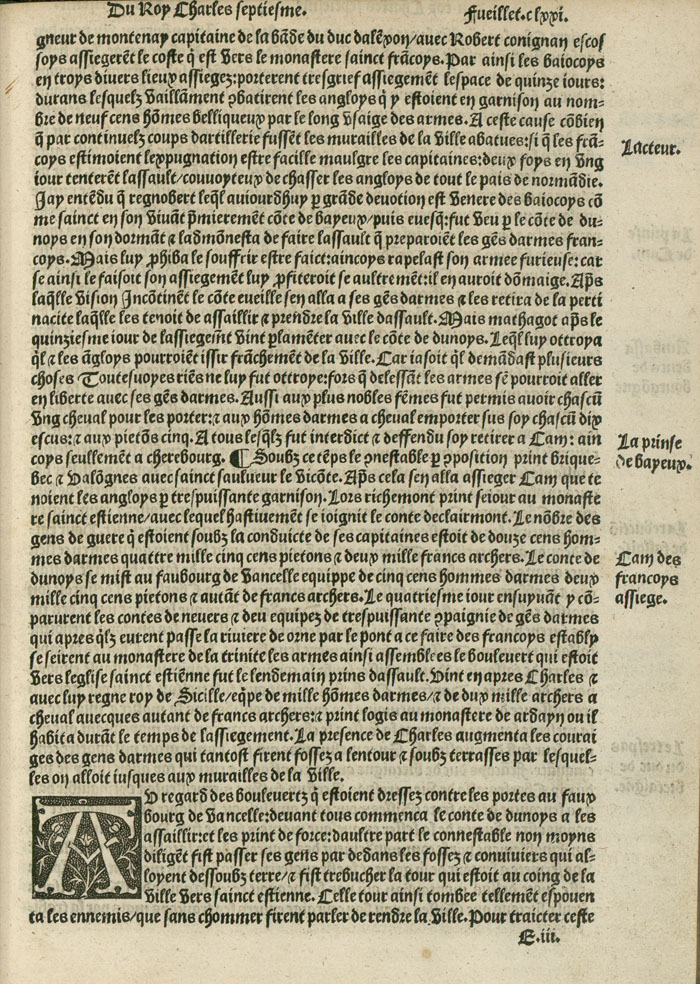 Du Roy Charles septiesme.
Fueillet.clxxi.
gneur de montenay capitaine de la bãde du duc dalẽxon/avec Robert conignan escos
soys assiegerẽt le coste q̃ est vers le monastere sainct frãcoys. Par ainsi les baiocoys
en troys divers lieux assiegez:porterent tresgrief assiegement lespace de quinze iours:
durans lesquelz vaillãment ꝯbatirent les angloys q̃ y estoient en garnison au nom-
bre de neuf cens hõmes belliqueux par le long usaige des armes. A ceste cause cõbien
q̃ par continuelz coups dartillerie fussẽt les murailles de la ville abatues:si q̃ les frã-
coys estimoient lexpugnation estre facille maulgre les capitaines:deux foys en ung
Lacteur.
iour tenterẽt lassault/couuoyteux de chasser les angloys de tout le pais de normãdie.
Jay entẽdu q̃ regnobert leq̃l auiourdhuy ꝑ grãde devotion est venere des baiocoys cõ
me sainct en son viuãt p̃mieremẽt cõte de bayeux/puis euesq̃:fut veu ꝑ le cõte de du-
noys en son dormãt ⁊ ladmõnesta de faire lassault q̃ preparoiẽt les gẽs darmes fran-
coys. Mais luy ꝓhiba le souffrir estre faict:aincoys rapelast son armee furieuse: car
se ainsi le faisoit son assiegement luy ꝓfiteroit se aultremẽt:il en auroit dõmaige. Ap̃s
laq̃lle vision Incõtinẽt le cõte eueille sen alla a ses gẽs darmes ⁊ les retira de la perti
nacite laq̃lle les tenoit de assaillir ⁊ prendre la ville dassault. Mais mathagot ap̃s le
quinziesme iour de lassiegem̃t vint ꝑlamẽter auec le cõte de dunoys. Leq̃l luy ottroya
q̃l ⁊ les ãgloys pourroiẽt issir frãchemẽt de la ville. Car iasoit q̃l demãdast plusieurs
choses Toutesuoyes riẽs ne luy fut ottroye:fors q̃ delessãt les armes sẽ pourroit aller
en liberte auec ses gẽs darmes. Aussi aux plus nobles fẽmes fut permis auoir chascũ
ung cheval pour les porter:⁊ aux hõmes darmes a cheval emporter sus soy chascũ dix
escus:⁊ aux pietõs cinq. A tous lesq̃lz fut interdict ⁊ deffendu soy retirer a Cam: ain
La prinse
coys seullemẽt a cherebourg. ¶ Soubz ce tẽps le ꝯnestable ꝑ ꝯposition print brique-
de bayeux.
bec ⁊ valõgnes auec sainct saulueur le vicõte. Ap̃s cela sen alla assieger Cam que te
noient les angloys ꝑ trespuissante garnison. Lors richemont print seiour au monaste
re sainct estienne/auec lequel hastiuemẽt se ioignit le conte declairmont. Le nõbre des
gens de guere q̃ estoient soubz la conduicte de ses capitaines estoit de douze cens hom-
mes darmes quattre mille cinq cens pietons ⁊ deux mille francs archers. Le conte de
Cam des
dunoys se mist au faubourg de Vancelle equippe de cinq cens hommes darmes deux
francoys
mille cinq cens pietons ⁊ autãt de francs archers. Le quatriesme iour ensuyuãt y cõ-
assiege.
parurent les contes de neuers ⁊ deu equipez de trespuissante ꝯpaignie de gẽs darmes
qui apres q̃lz eurent passe la riuiere de orne par le pont a ce faire des francoys estably
se seirent au monastere de la trinite les armes ainsi assemblees le bouleuert qui estoit
vers leglise sainct estiẽne fut le lendemain prins dassault. Vint en apres Charles ⁊
auec luy regne roy de Sicille/eq̃pe de mille hõmes darmes/⁊ de dux mille archers a
cheual auecques autant de francs archers:⁊ print logis au monastere de ardayn ou il
habita durãt le temps de lassiegement. La presence de Charles augmenta les courai
ges des gens darmes qui tantost firent fossez a lentour ⁊ soubz terrasses par lesquel-
les on alloit iusques aux murailles de la ville.
AU regard des bouleuertz q̃ estoient dressez contre les portes au faux
bourg de Vancelle:devant tous commenca le conte de dunoys a les
assaillir:et les print de force:daultre part le connestable non moyns
diligẽt fist passer ses gens par dedans les fossez ⁊ conuiuiers qui al-
loyent dessoubz terre/⁊ fist trebucher la tour qui estoit au coing de la
ville vers sainct estienne. Celle tour ainsi tombee tellemẽt espouen
ta les ennemis/que sans chommer firent parler de rendre la ville. Pour traicter ceste
E.iii.